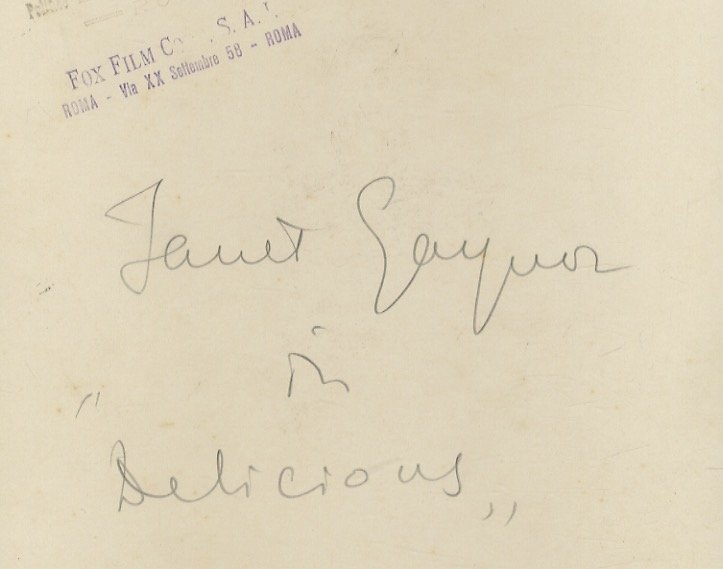 FOX FILM S. A. I.
ROMA - Via XX Settembre 58 - ROMA
Janet Gaynor
in
„Delicious„